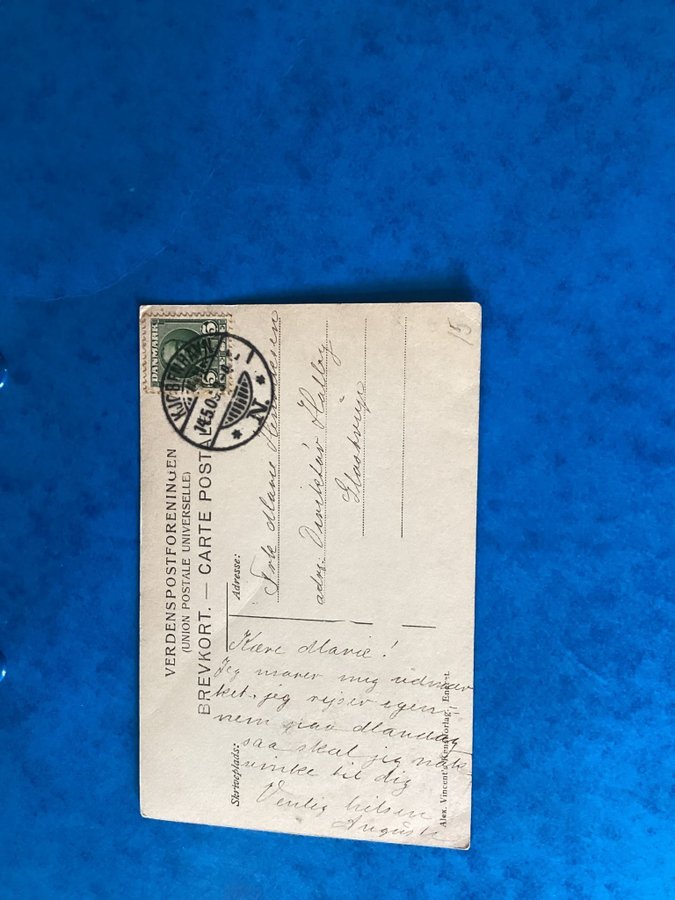 VERDENSPOSTFORENINGEN
(UNION POSTALE UNIVERSELLE)
BREVKORT. — CARTE POSTALE
DANMARK
5 5
KJØBENHAVN
14.5.0
N.
Adresse:
Frk Marie
adr. Direktør Halby
Glostrup
15
Skriveplads:
Kære Marie!
Jeg morer mig udmær
ket, jeg rejser igen¬
nem paa Mandag
saa skal jeg nok
vinke til dig
Venlig hilsen
August
Alex. Vincent's Kunstforlag, Eneret.